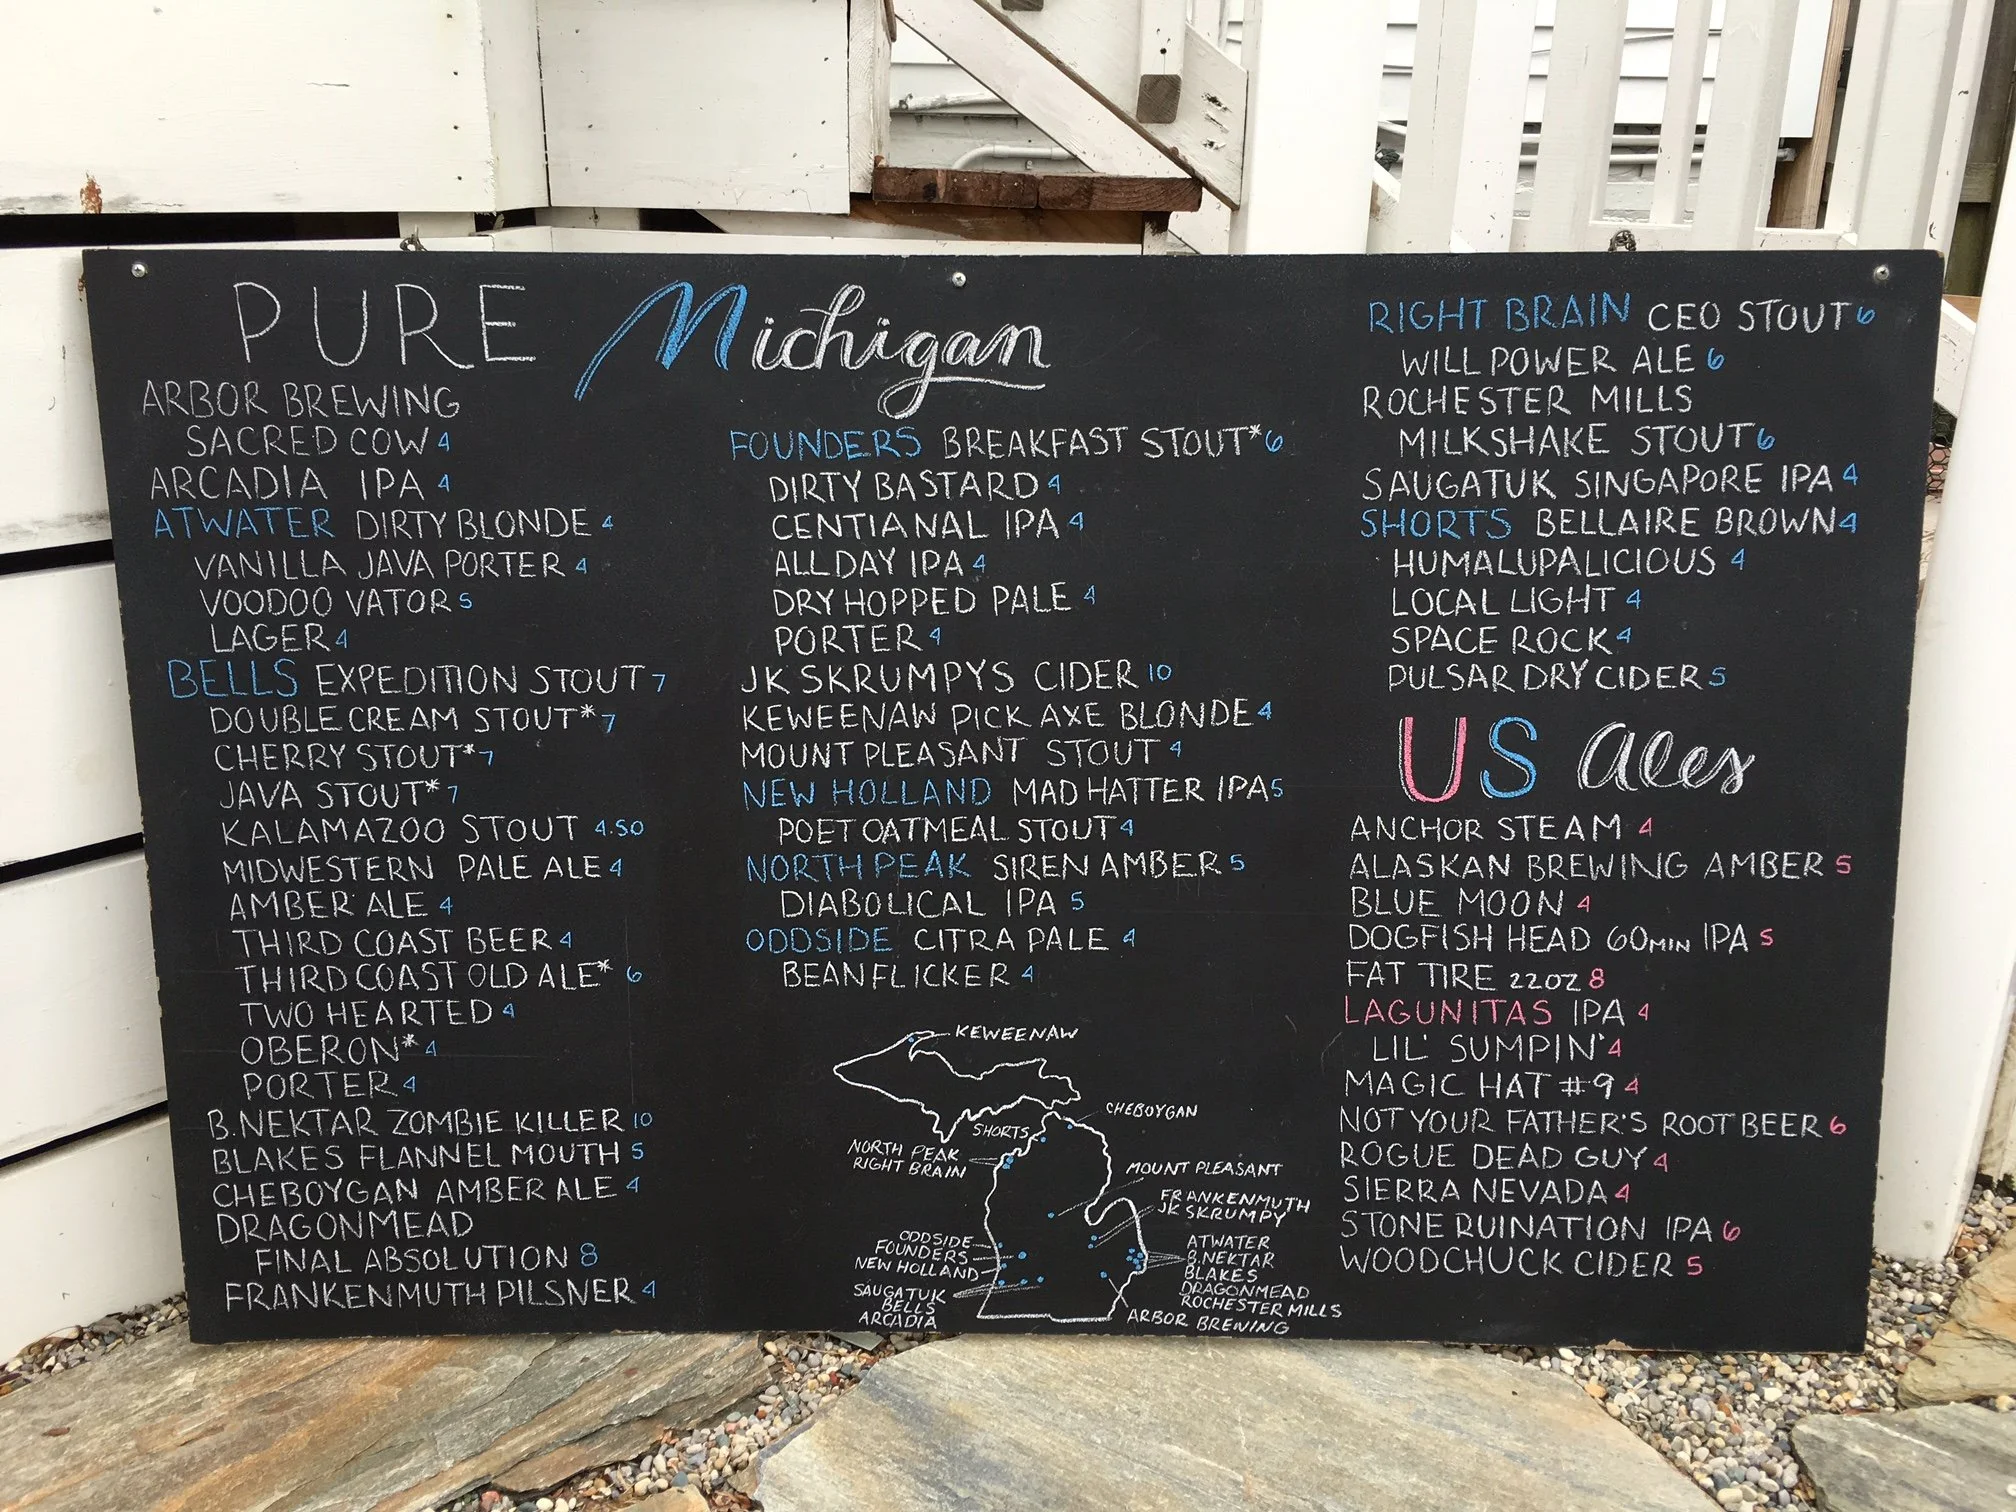 PURE Michigan
ARBOR BREWING
SACRED COW 4
ARCADIA IPA 4
ATWATER DIRTY BLONDE 4
VANILLA JAVA PORTER 4
VOODOO VATOR 5
LAGER 4
BELLS EXPEDITION STOUT 7
DOUBLE CREAM STOUT* 7
CHERRY STOUT* 7
JAVA STOUT* 7
KALAMAZOO STOUT 4.50
MIDWESTERN PALE ALE 4
AMBER ALE 4
THIRD COAST BEER 4
THIRD COAST OLD ALE* 6
TWO HEARTED 4
OBERON* 4
PORTER 4
B.NEKTAR ZOMBIE KILLER 10
BLAKES FLANNEL MOUTH 5
CHEBOYGAN AMBER ALE 4
DRAGONMEAD
FINAL ABSOLUTION 8
FRANKENMUTH PILSNER 4
FOUNDERS BREAKFAST STOUT* 6
DIRTY BASTARD 4
CENTIANAL IPA 4
ALL DAY IPA 4
DRY HOPPED PALE 4
PORTER 4
JK SKRUMPYS CIDER 10
KEWEENAW PICK AXE BLONDE 4
MOUNT PLEASANT STOUT 4
NEW HOLLAND MAD HATTER IPA 5
POET OATMEAL STOUT 4
NORTH PEAK SIREN AMBER 5
DIABOLICAL IPA 5
ODDSIDE CITRA PALE 4
BEAN FLICKER 4
KEWEENAW
CHEBOYGAN
SHORTS
NORTH PEAK
RIGHT BRAIN
MOUNT PLEASANT
FRANKENMUTH
JK SKRUMPY
ODDSIDE
FOUNDERS
NEW HOLLAND
SAUGATUK
BELLS
ARCADIA
ATWATER
B.NEKTAR
BLAKES
DRAGONMEAD
ROCHESTER MILLS
ARBOR BREWING
RIGHT BRAIN CEO STOUT 6
WILL POWER ALE 6
ROCHESTER MILLS
MILKSHAKE STOUT 6
SAUGATUK SINGAPORE IPA 4
SHORTS BELLAIRE BROWN 4
HUMALUPALICIOUS 4
LOCAL LIGHT 4
SPACE ROCK 4
PULSAR DRY CIDER 5
US Ales
ANCHOR STEAM 4
ALASKAN BREWING AMBER 5
BLUE MOON 4
DOGFISH HEAD 60MIN IPA 5
FAT TIRE 22OZ 8
LAGUNITAS IPA 4
LIL' SUMPIN' 4
MAGIC HAT #9 4
NOT YOUR FATHER'S ROOT BEER 6
ROGUE DEAD GUY 4
SIERRA NEVADA 4
STONE RUINATION IPA 6
WOODCHUCK CIDER 5